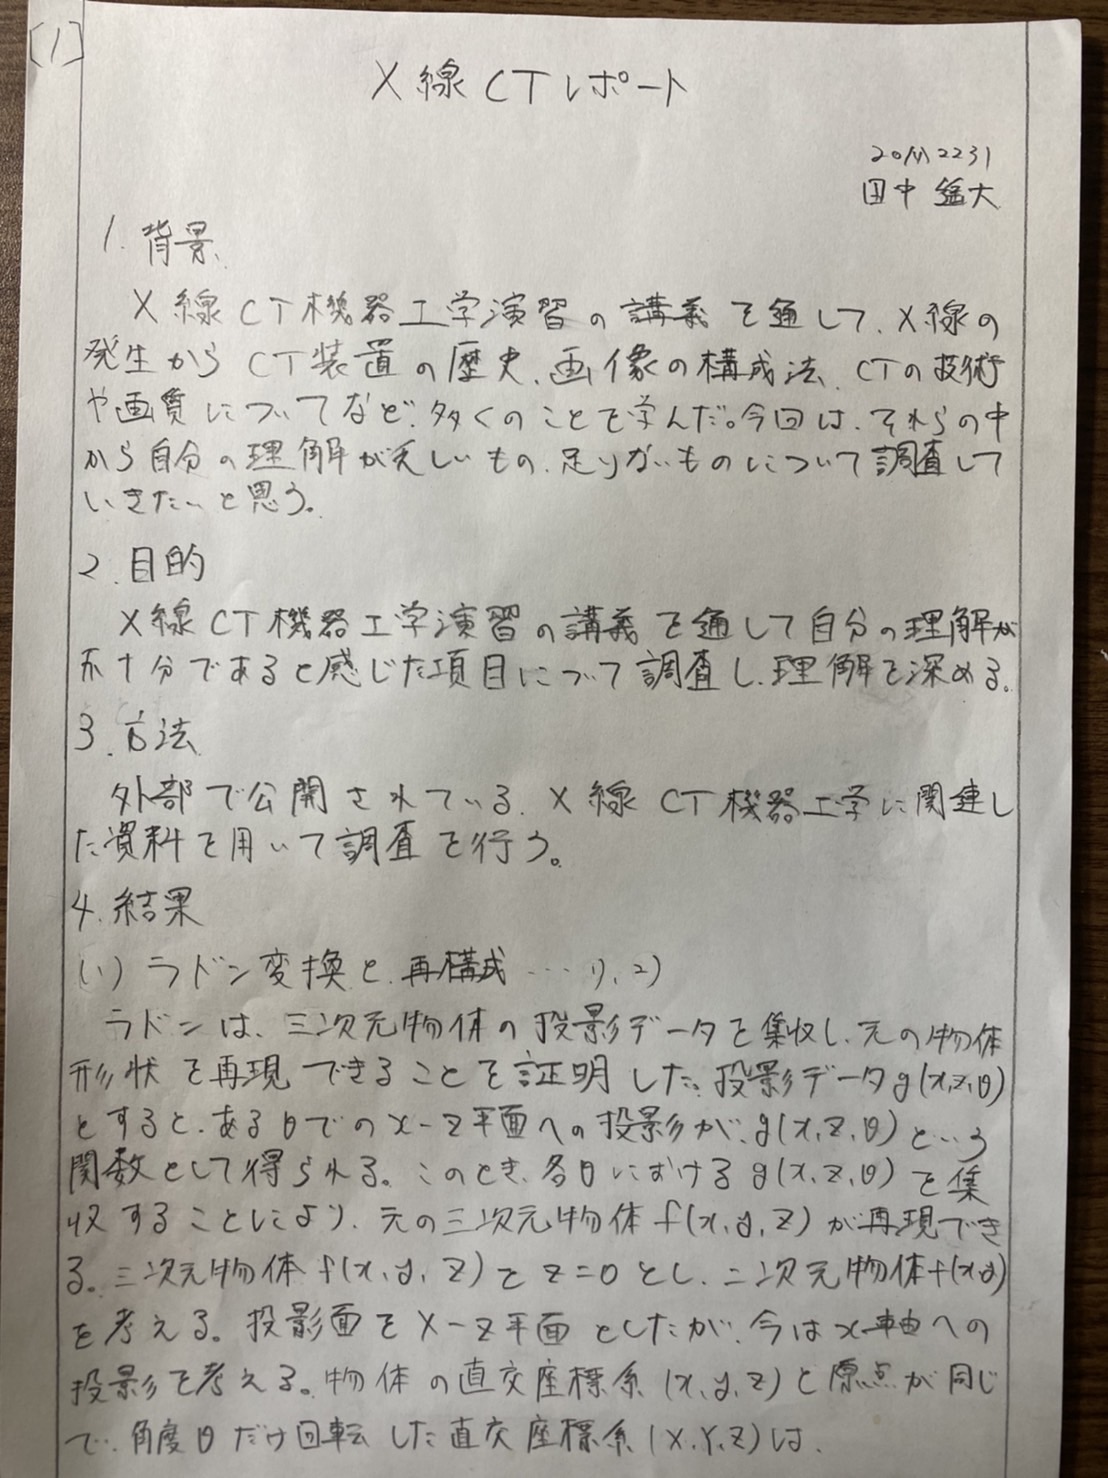 [1]
X線CTレポート
20M2231
田中 猛大
1. 背景
X線CT機器工学演習の講義を通して、X線の
発生からCT装置の歴史、画像の構成法、CTの技術
や画質についてなど、多くのことを学んだ。今回は、それらの中
から自分の理解が乏しいもの、足りないものについて調査して
いきたいと思う。
2. 目的
X線CT機器工学演習の講義を通して自分の理解が
不十分であると感じた項目について調査し、理解を深める。
3. 方法
外部で公開されている、X線CT機器工学に関連し
た資料を用いて調査を行う。
4. 結果
(1) ラドン変換と再構成 … 1), 2)
ラドンは、三次元物体の投影データを集収し、元の物体
形状を再現できることを証明した。投影データg(x,z,θ)
とすると、あるθでのx-z平面への投影が、g(x,z,θ)という
関数として得られる。このとき、各θにおけるg(x,z,θ)を集
収することにより、元の三次元物体f(x,y,z)が再現でき
る。三次元物体f(x,y,z)をz=0とし、二次元物体f(x,y)
を考える。投影面をX-Z平面としたが、今はx軸への
投影を考える。物体の直交座標系(x,y,z)と原点が同じ
で、角度θだけ回転した直交座標系(X,Y,Z)は、